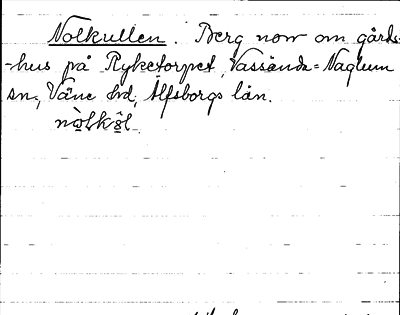 Nolkullen. Berg norr om gårds-
-hus på Ryketorpet, Vassända-Naglum
sn, Väne hd, Älfsborgs län.